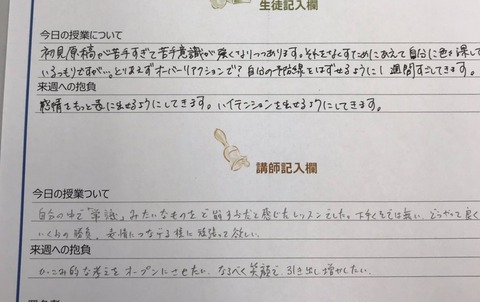 生徒記入欄
今日の授業について
初見原稿が苦手すぎて苦手意識が強くなりつつあります。それをなくすためにあえて自分に色を課して
いるつもりですが…。とりあえずオーバーリアクションで?自分の予防線をはずせるように1週間すごしてきます。
来週への抱負
感情をもっと表に出せるようにしてきます。ハイテンションを出せるようにしてきます。
講師記入欄
今日の授業ついて
自分の中で「常識」みたいなものをど崩すかだと感じたレッスンでした。下手くそでは無い、どうやって良く
いくかの勝負、表情につなげる様に頑張って欲しい。
来週への抱負
かこみ的な考えをオープンにさせたい、なるべく笑顔で、引き出し増やしたい。